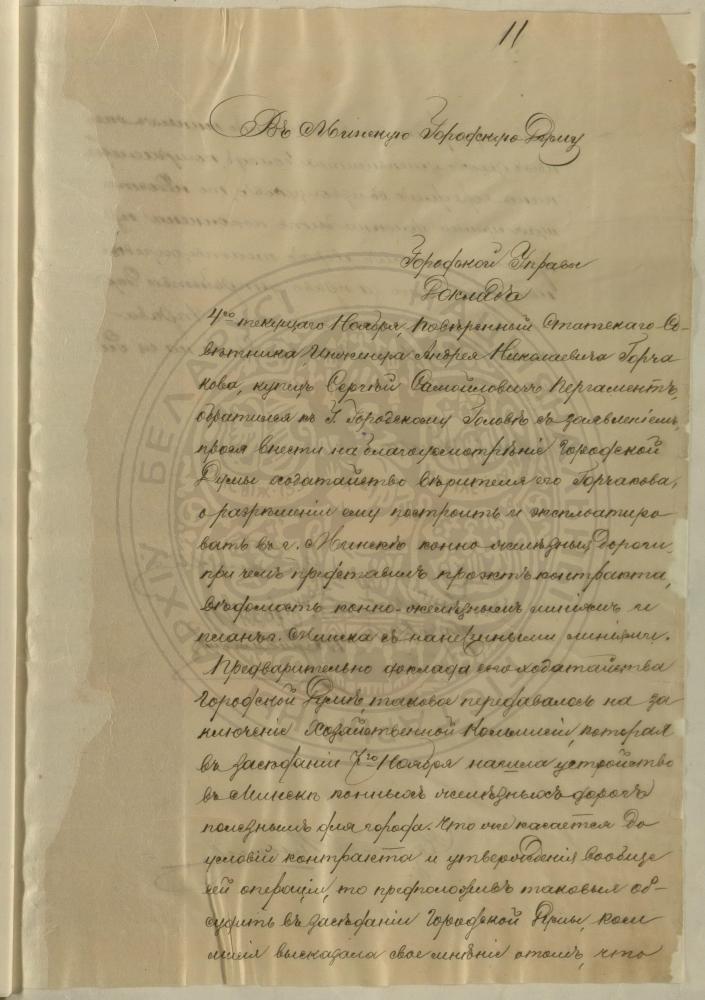 11
Въ Минскую Городскую Думу
Городской Управы
Докладъ
4го текущаго Ноября, повѣренный Статскаго Со-
вѣтника, Инженера Андрея Николаевича Горча
кова, купецъ Сергѣй Самойловичъ Пергаментъ,
обратился къ Г. Городскому Головѣ съ заявленіемъ,
прося внести на благоусмотрѣніе Городской
Думы ходатайство вѣрителя его Горчакова,
о разрѣшеніи ему построить и эксплоатиро
вать въ г. Минскѣ конно-желѣзныя дороги,
при чемъ представилъ проэктъ контракта,
вѣдомость конно-желѣзнымъ линіямъ и
планъ г. Минска съ нанесенными линіями.
Предварительно доклада сего ходатайства
Городской Думѣ, таковое передавалось на за
ключеніе Хозяйственной Коммисіи, которая
въ засѣданіи 7го Ноября нашла устройство
въ Минскѣ конныхъ желѣзныхъ дорогъ
полезнымъ для города. Что же касается до
условій контракта и утвержденія вообще
сей операціи, то предположивъ таковыя об-
судить въ засѣданіи Городской Думы, ком
мисія высказала свое мнѣніе о томъ, что